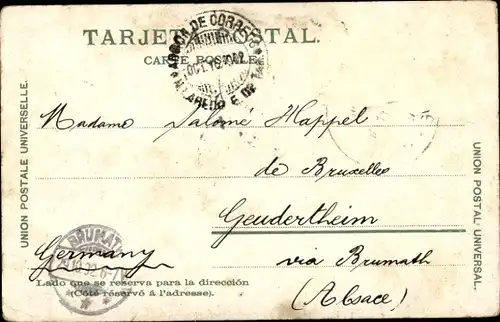 TARJETA POSTAL.
CARTE POSTALE.
DE CORREO
OCT.
UNION POSTALE UNIVERSELLE.
Madame Salomé Happel
de Bruxelles
Geudertheim
Germany via Brumath
(Alsace)
BRUMATH
Lado que se reserva para la dirección
(Côté réservé á l'adresse).
UNION POSTAL UNIVERSAL.